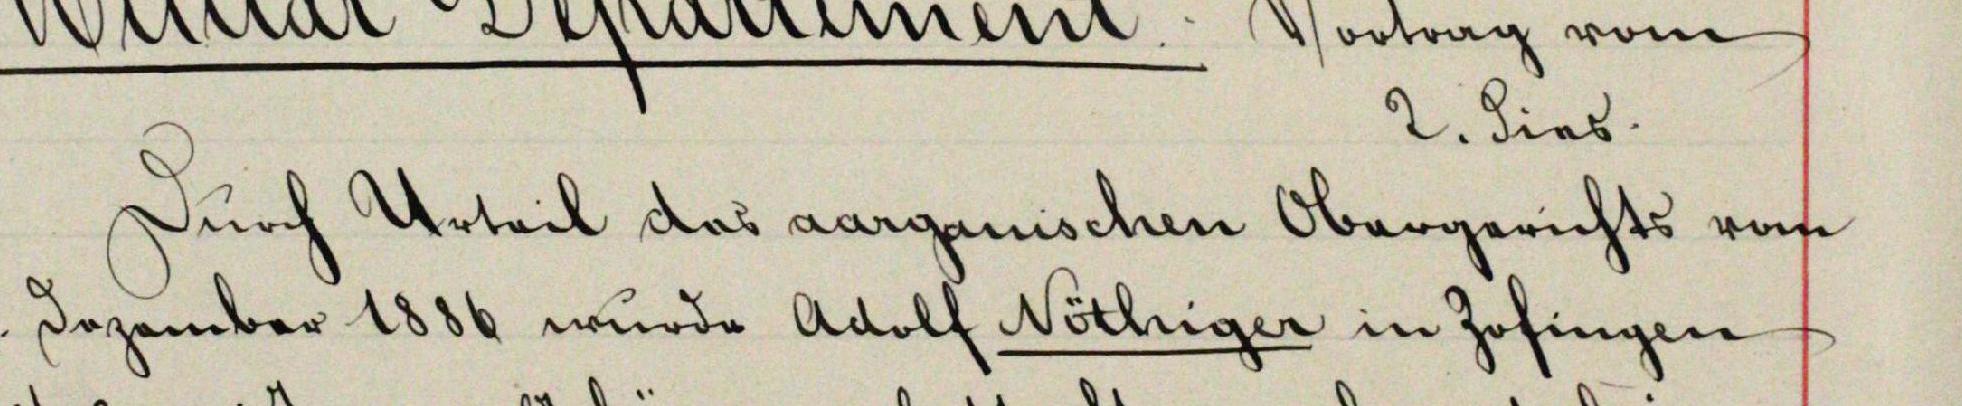 Militär Departement. Vortrag vom
2. dies.
Durch Urteil des aargauischen Obergerichts vom
. Dezember 1886 wurde Adolf Nöthiger in Zofingen